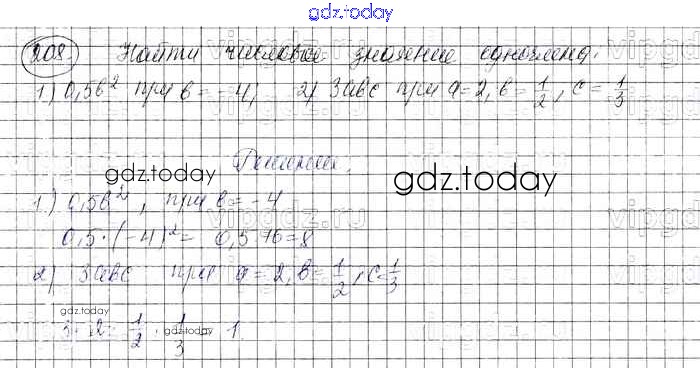 gdz.today
208. Найти числовое значение одночлена.
1) 0,5b² при b = -4; 2) 3abc при a = 2, b = 1/2, c = 1/3
Решение.
gdz.today
gdz.today
1) 0,5b², при b = -4
0,5 · (-4)² = 0,5 · 16 = 8
2) 3abc при a = 2, b = 1/2, c = 1/3
gdz.today
3 · 2 · 1/2 · 1/3 = 1.
gdz.today